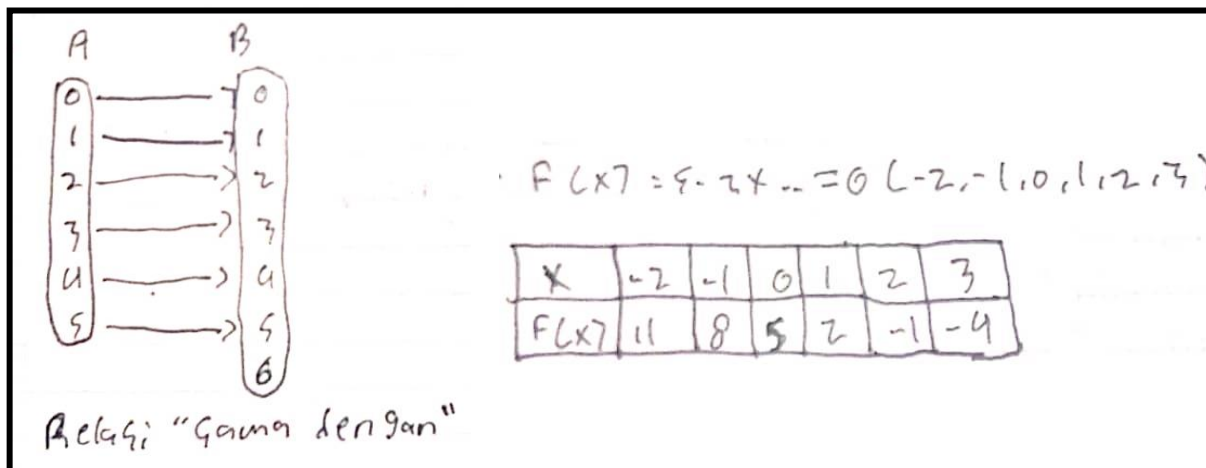 A B
0 0
1 1
2 2
3 3
4 4
5 5
6
Relasi "Sama dengan"
F(x) = 5-2x .. = 0 (-2,-1,0,1,2,3)
x -2 -1 0 1 2 3
F(x) 11 8 5 2 -1 -4